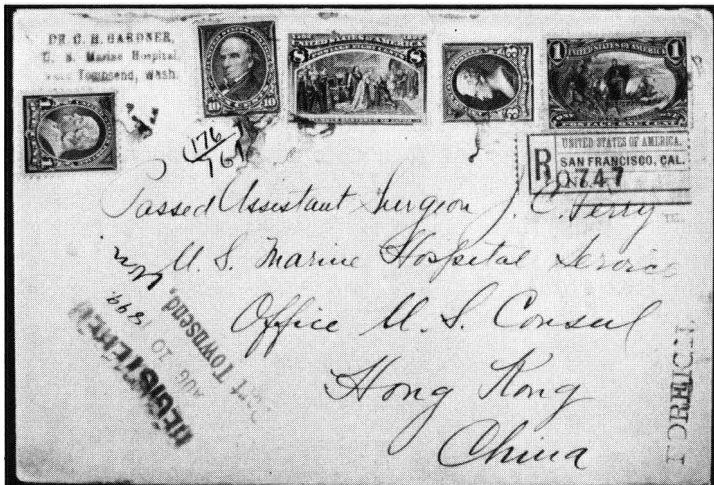 DR. C. H. GARDNER,
U. S. Marine Hospital,
Port Townsend, Wash.
10 10
UNITED STATES OF AMERICA
8 8
1 UNITED STATES OF AMERICA 1
176
761
UNITED STATES OF AMERICA.
R SAN FRANCISCO, CAL.
No.
0747
Passed Assistant Surgeon J. C. Perry
U. S. Marine Hospital Service
Office U. S. Consul
Hong Kong
China
REGISTERED
AUG 10 1899
Port Townsend,
FOREIGN.